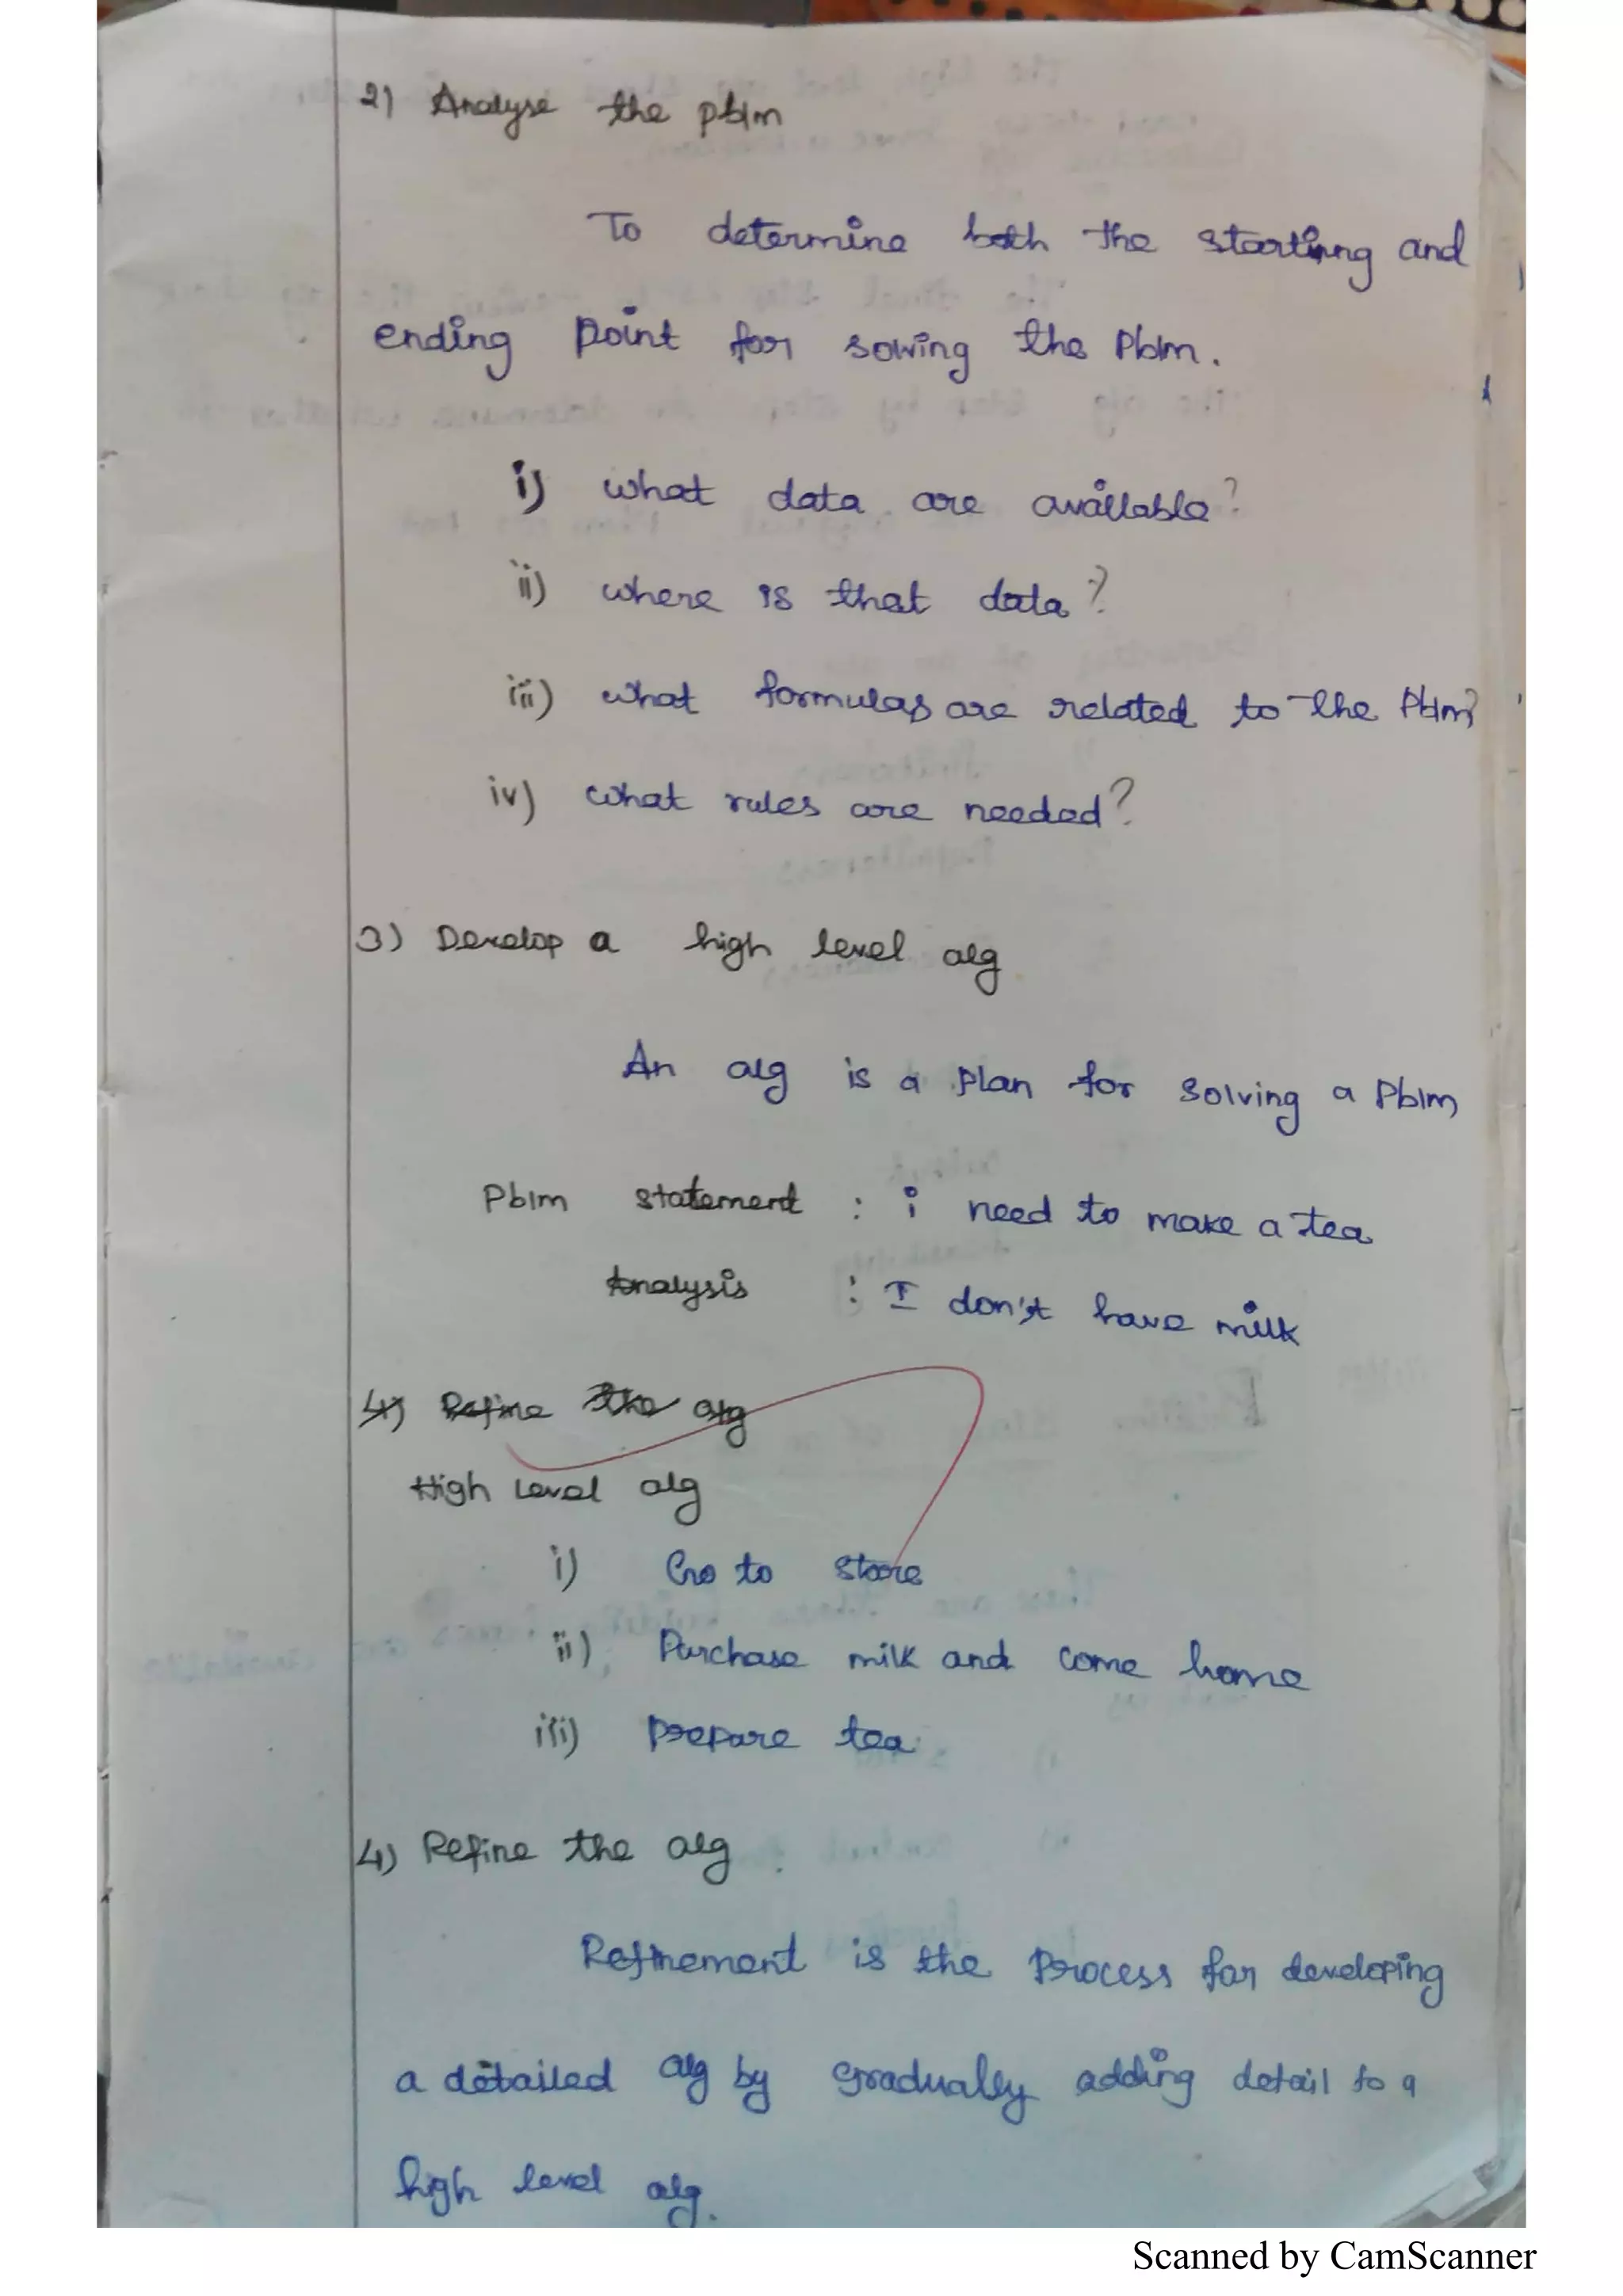 2) Analyse the pblm
To determine both the starting and
ending point for solving the Pblm.
i) what data are available?
ii) where is that data?
iii) what formulas are related to the Pblm?
iv) what rules are needed?
3) Develop a high level alg
An alg is a plan for solving a Pblm
Pblm statement : i need to make a tea
Analysis : I don't have milk
4) Refine the alg
High Level alg
i) Go to store
ii) Purchase milk and come home
iii) prepare tea
4) Refine the alg
Refinement is the process for developing
a detailed alg by gradually adding detail to a
high level alg.
Scanned by CamScanner